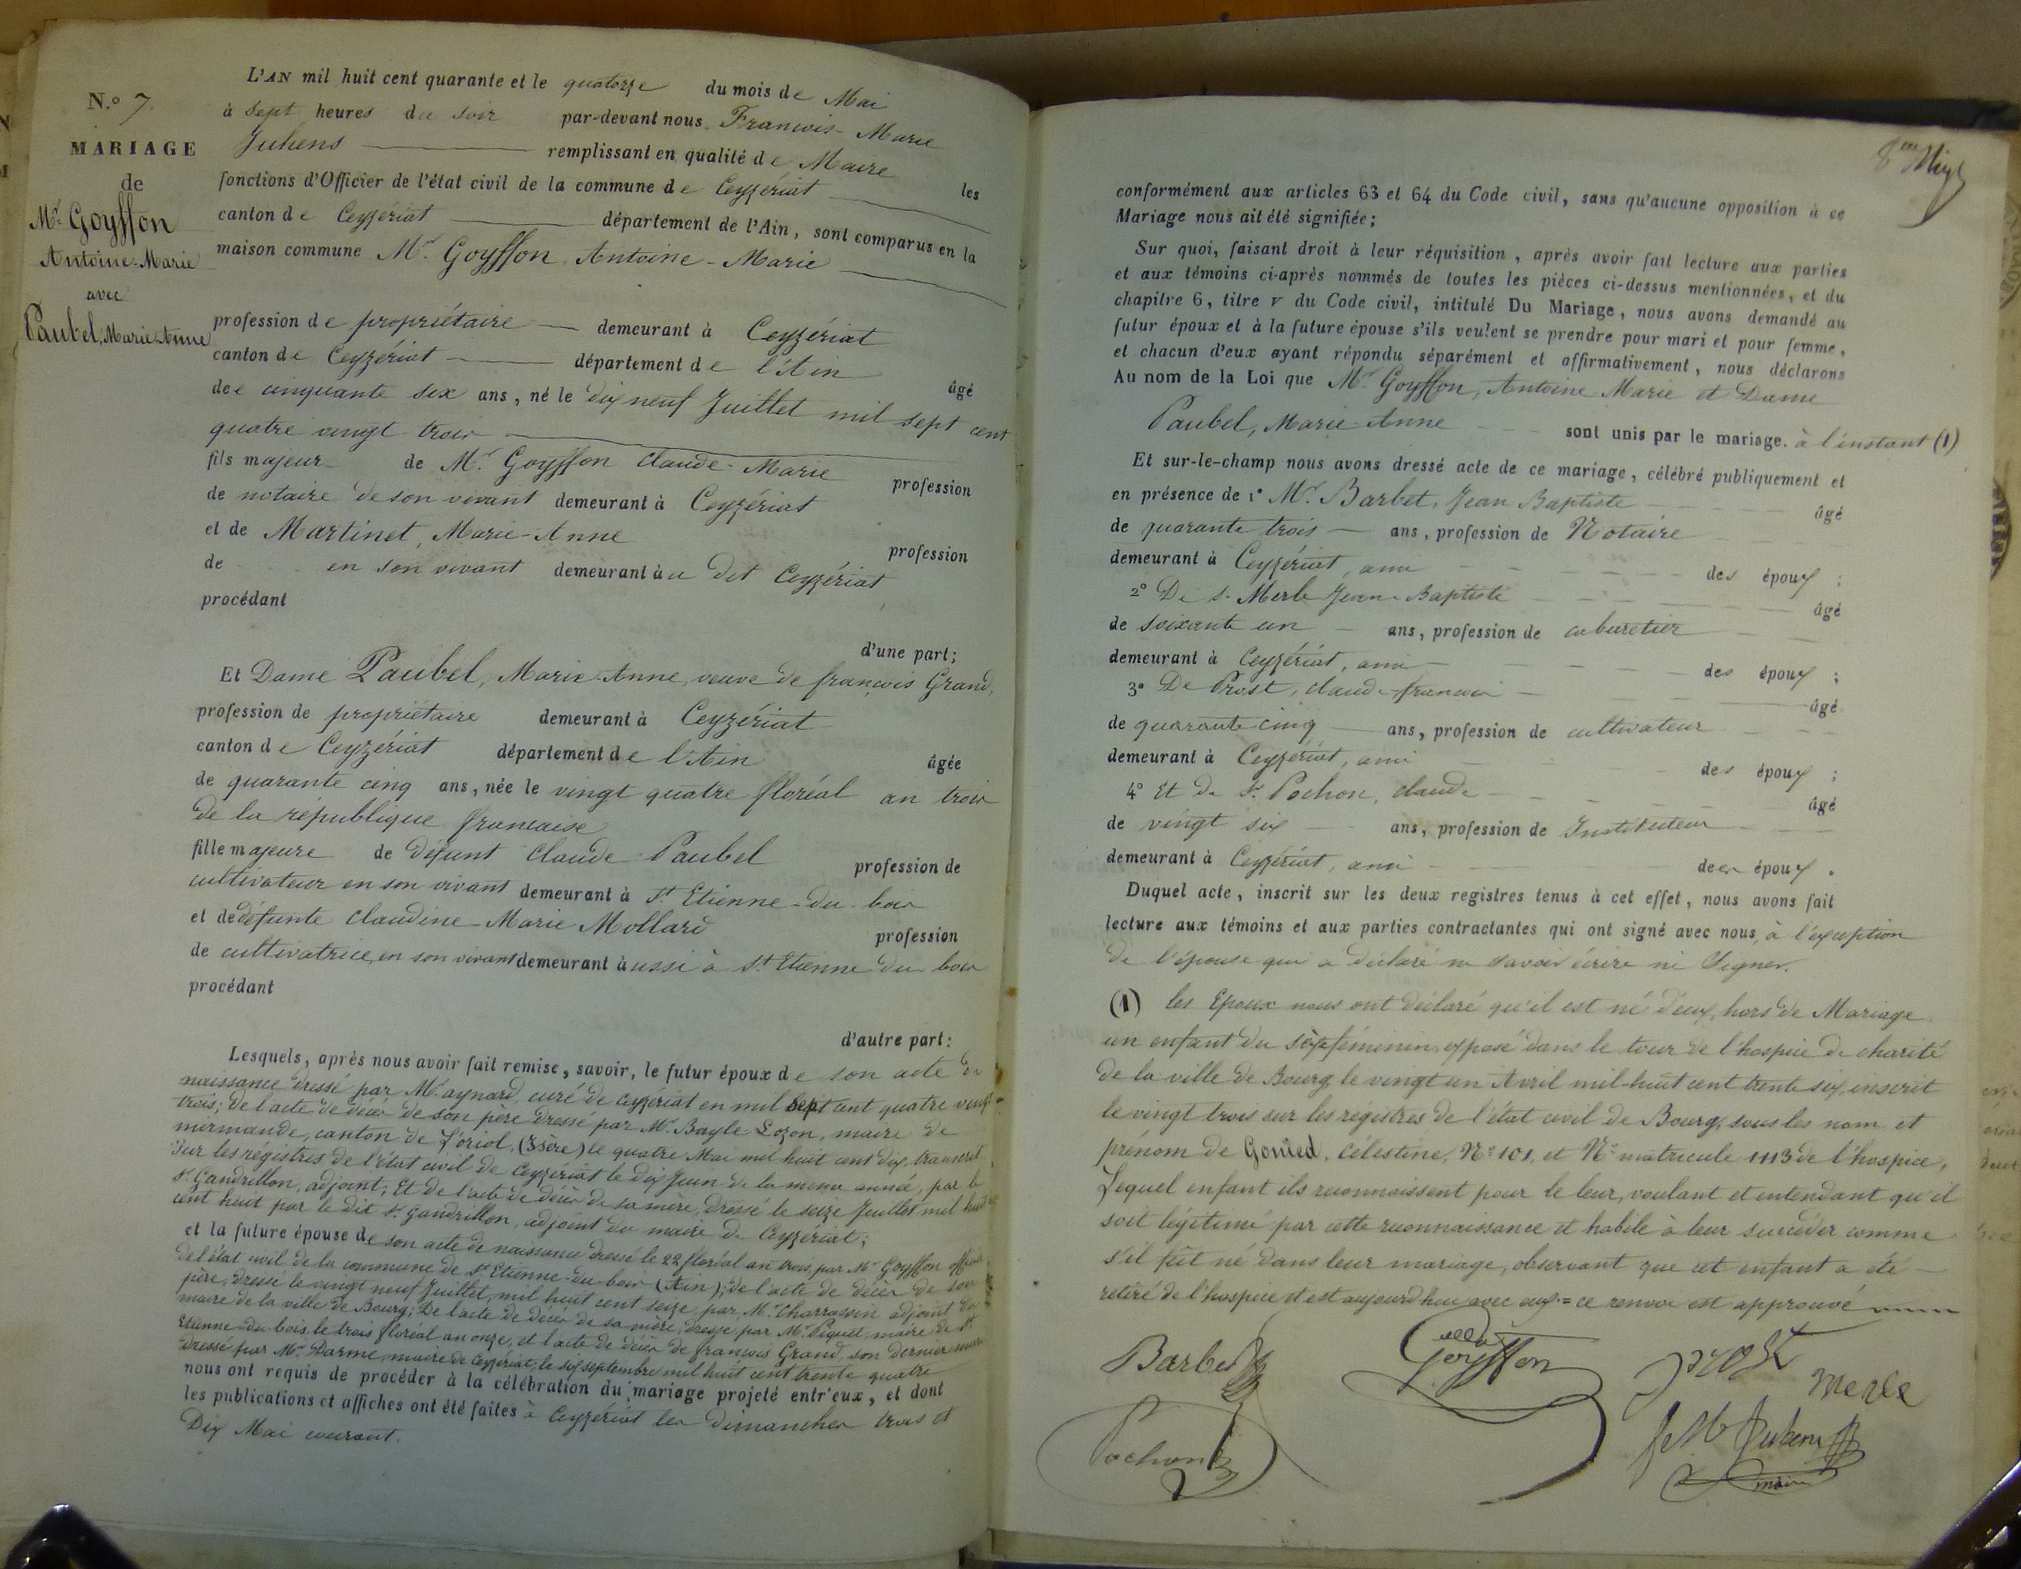 N.° 7.
MARIAGE
de
Mr. Goyffon
Antoine-Marie
avec
Paubel, Marie-Anne
L'AN mil huit cent quarante et le quatorze du mois de Mai
à Sept heures du soir par-devant nous François-Marie
Juhens remplissant en qualité de Maire les
fonctions d'Officier de l'état civil de la commune de Ceyzériat
canton de Ceyzériat département de l'Ain, sont comparus en la
maison commune Mr. Goyffon, Antoine-Marie
profession de propriétaire demeurant à Ceyzériat
canton de Ceyzériat département de l'Ain âgé
de cinquante six ans, né le dix neuf Juillet mil sept cent
quatre vingt trois
fils majeur de Mr. Goyffon Claude-Marie profession
de notaire de son vivant demeurant à Ceyzériat
et de Martinet, Marie-Anne profession
de en son vivant demeurant au dit Ceyzériat
procédant
d'une part;
Et Dame Paubel, Marie-Anne, veuve de françois Grand,
profession de propriétaire demeurant à Ceyzériat
canton de Ceyzériat département de l'Ain âgée
de quarante cinq ans, née le vingt quatre floréal an trois
de la république française
fille majeure de défunt Claude Paubel profession de
cultivateur en son vivant demeurant à St. Etienne-du-bois
et de défunte Claudine-Marie Mollard profession
de cultivatrice, en son vivant demeurant aussi à St. Etienne du bois
procédant
d'autre part:
Lesquels, après nous avoir fait remise, savoir, le futur époux de son acte de
naissance dressé par Mr. aynard, curé de Ceyzériat en mil sept cent quatre vingt
trois; de l'acte de décès de son père dressé par Mr. Bayle Lozon, maire de
mirmande, canton de Loriol, (Isère) le quatre Mai mil huit cent dix, transcrit
sur les registres de l'état civil de Ceyzériat le dix Juin de la même année, par le
Sr. Gandrillon, adjoint; Et de l'acte de décès de sa mère, dressé le seize Juillet mil huit
cent huit par le dit Sr. Gandrillon, adjoint du maire de Ceyzériat;
et la future épouse de son acte de naissance dressé le 22 floréal an trois, par Mr. Goyffon officier
de l'état civil de la commune de St. Etienne-du-bois (Ain); de l'acte de décès de son
père, dressé le vingt neuf Juillet, mil huit cent seize par M. Charrassin adjoint du
maire de la ville de Bourg; De l'acte de décès de sa mère, dressé par Mr. Piquet, maire de St.
Etienne-du-bois le trois floréal an onze, et l'acte de décès de françois Grand, son dernier mari
dressé par Mr. Darme, maire de Ceyzériat, le six septembre mil huit cent trente quatre
nous ont requis de procéder à la célébration du mariage projeté entr'eux, et dont
les publications et affiches ont été faites à Ceyzériat les dimanches trois et
Dix Mai courant.
conformément aux articles 63 et 64 du Code civil, sans qu'aucune opposition à ce
Mariage nous ait été signifiée;
Sur quoi, faisant droit à leur réquisition, après avoir fait lecture aux parties
et aux témoins ci-après nommés de toutes les pièces ci-dessus mentionnées, et du
chapitre 6, titre v du Code civil, intitulé Du Mariage, nous avons demandé au
futur époux et à la future épouse s'ils veulent se prendre pour mari et pour femme,
et chacun d'eux ayant répondu séparément et affirmativement, nous déclarons
Au nom de la Loi que Mr. Goyffon, Antoine Marie et Dame
Paubel, Marie-Anne sont unis par le mariage. à l'instant (1)
Et sur-le-champ nous avons dressé acte de ce mariage, célébré publiquement et
en présence de 1° Mr. Barbet, Jean Baptiste âgé
de quarante trois ans, profession de Notaire
demeurant à Ceyzériat, ami des époux;
2° De s. Merle Jean-Baptiste âgé
de soixante un ans, profession de cabaretier
demeurant à Ceyzériat, ami des époux;
3° De Prost, claude-francois âgé
de quarante cinq ans, profession de cultivateur
demeurant à Ceyzériat, ami des époux;
4° Et de Sr. Pochon, claude âgé
de vingt six ans, profession de Instituteur
demeurant à Ceyzériat, ami des époux.
Duquel acte, inscrit sur les deux registres tenus à cet effet, nous avons fait
lecture aux témoins et aux parties contractantes qui ont signé avec nous, à l'exception
de l'épouse qui a déclaré ne savoir écrire ni Signer.
(1) les Epoux nous ont déclaré qu'il est né d'eux, hors de Mariage
un enfant du sexe féminin, exposé dans le tour de l'hospice de charité
de la ville de Bourg le vingt un Avril mil-huit cent trente six, inscrit
le vingt trois sur les registres de l'état civil de Bourg, sous les nom et
prénom de Gonied, Célestine, N° 101, et N° matricule 1113 de l'hospice,
Lequel enfant ils reconnoissent pour le leur, voulant et entendant qu'il
soit légitimé par cette reconnaissance et habile à leur succéder comme
s'il fût né dans leur mariage, observant que cet enfant a été
retiré de l'hospice et est aujourd'hui avec eux = ce renvoi est approuvé
Barbet
Goyffon
prost
merle
Pochon
fs Me Juhens
maire